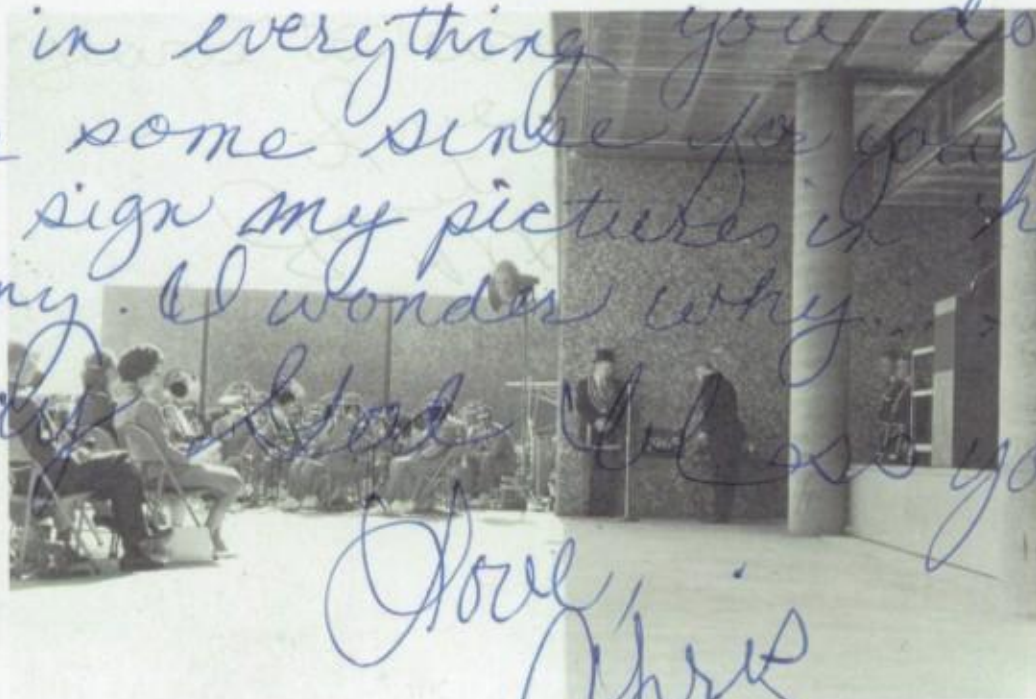 in everything you do
some sense for yours
sign my pictures in h
ny. I wonder why...
God bless yo
Love,
Chris